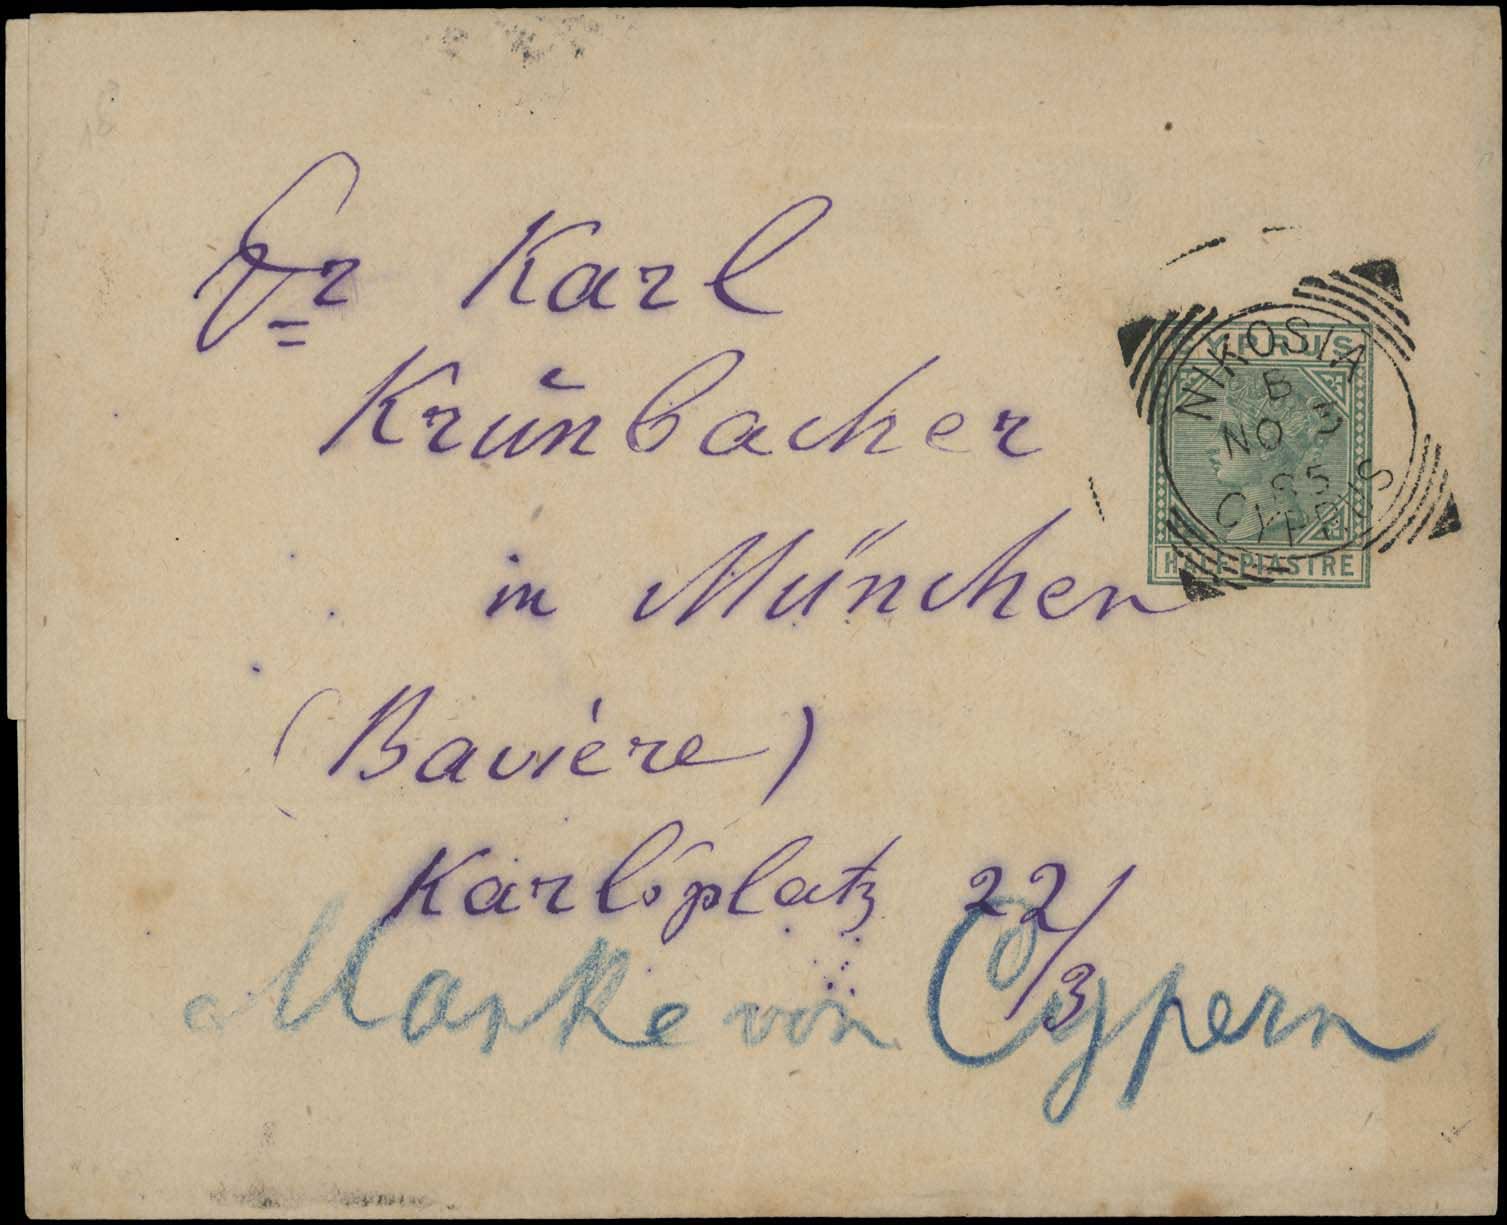 Dr Karl
Krŭnbacher
in München
(Bavière)
Karlsplatz 22/3
Marke von Cypern
CYPRUS
HALF PIASTRE
NIKOSIA
NO
85
CYPRUS